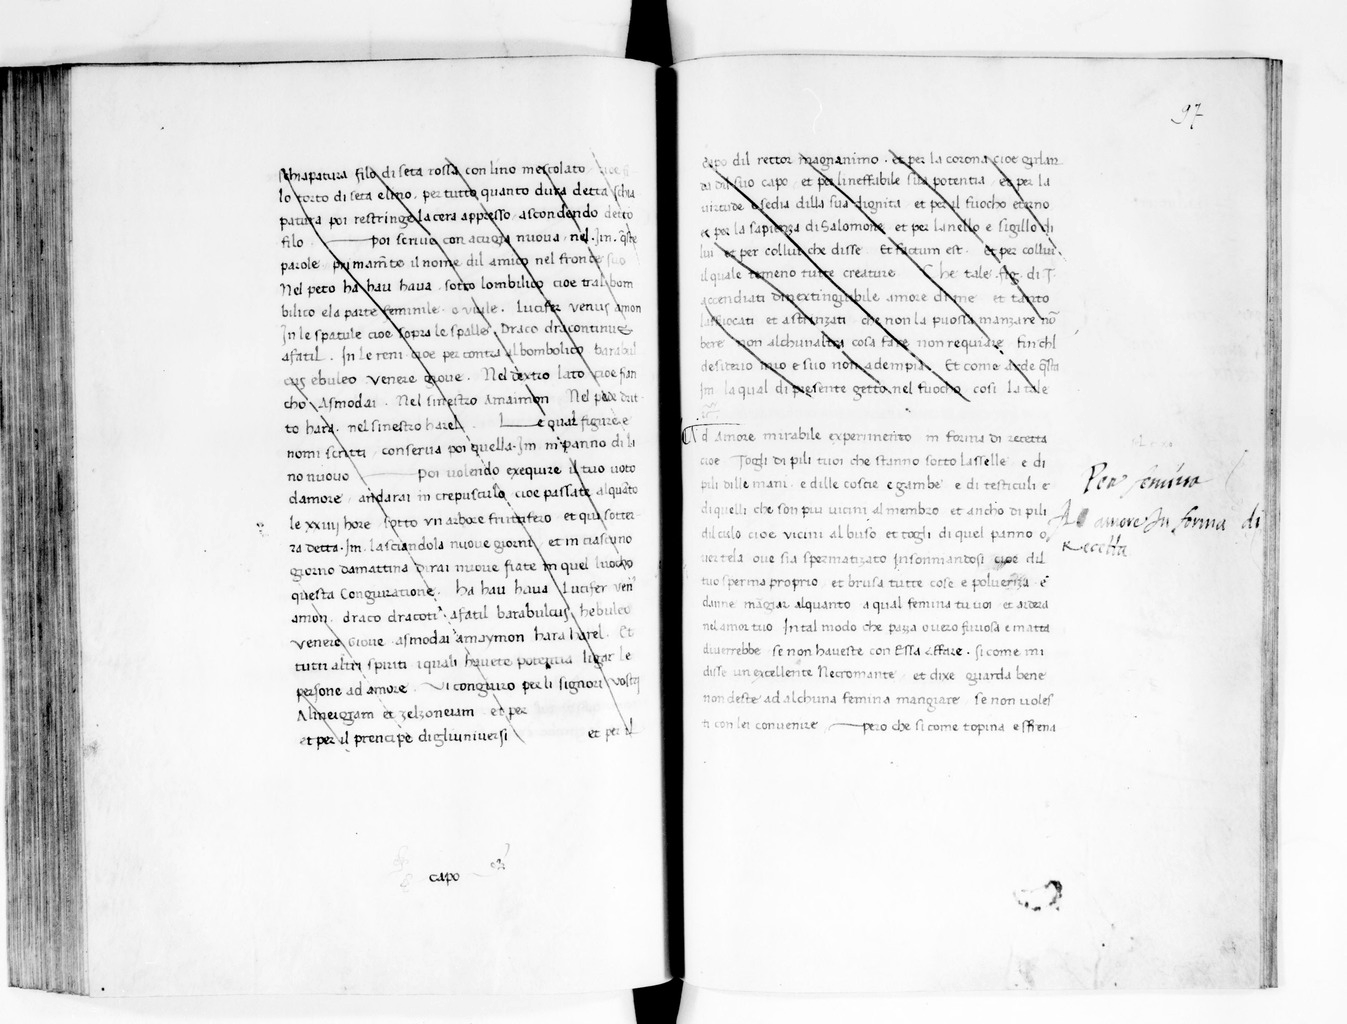 schiapatura filo di seta rossa con lino mescolato cioe
lo torto di seta e lino, per tutto quanto dura detta schia
patura poi restringe la cera appresso ascondendo detto
filo poi scrive con acuggia nuova nel Im. q̃ste
parole primamẽte il nome dil amico nel fronte suo
Nel peto ha hau haua . sotto lombilico cioe tra lbom
bilico e la parte feminile o virile . Lucifer venus amon
In le spatule cioe sopra le spalle . Draco dracontinus
afatil . In le reni cioe per contra al bombolico barabul
cus ebuleo venere giove . Nel dextro lato cioe fian
cho Asmodai . Nel sinestro Amaimon Nel pede drit
to hara . nel sinestro harel . Le qual figure e
nomi scritti conserva poi quella Im. in panno di li
no nuovo poi volendo exequire il tuo voto
damore , andarai in crepusculo cioe passate alquãto
le xxiiij hore sotto vn arbore fruttifero et qui sotter
ra detta Im. lasciandola nuove giorni et in ciascuno
giorno da mattina dirai nuove fiate in quel luocho
questa Congiuratione . ha hau haua Lucifer ven'
amon . draco dracoti' afatil barabulcus hebuleo
venere Giove . asmodai amaymon hara harel . Et
tutti altri spiriti i quali havete potentia ligar le
persone ad amore . Vi congiuro per li signori vostri
et per
et per il prencipe di gli universi et per il
capo
97
capo dil rettor magnanimo . et per la corona cioe girlan
da dil suo capo et per lineffabile sua potentia , et per la
virtude e sedia dilla sua dignita et per il fuocho eterno
et per la sapienza di Salomone et per lanello e sigillo di
lui et per collui che disse Et factum est . et per collui
il quale temeno tutte creature Che tale fig. di T.
accendiati dinextinguibile amore di me et tanto
laffocati et astrinzati che non la puossa manzare nõ
bere non alchunaltra cosa fare non requiare fin chl
desiderio mio e suo non adempia . Et come arde q̃sta
Im. la qual di presente getto nel fuocho cosi la tale
Ad Amore mirabile experimento in forma di recetta
cioe Togli di pili tuoi che stanno sotto lasselle e di
pili dille mani . e dille coscie e gambe e di testiculi e
di quelli che son piu vicini al membro et ancho di pili
dil culo cioe vicini al buso et togli di quel panno o
ver tela ove sia spermatizato Insonniandosi cioe dil
tuo sperma proprio et brusa tutte cose e polveriza e
danne mãgiar alquanto a qual femina tu voi et ardera
nel amor tuo In tal modo che paza o vero furiosa e matta
diverrebbe se non haveste con Essa affare . si come mi
disse un excellente Necromante et dixe guarda bene
non deste ad alchuna femina mangiare se non voles
ti con lei convenire pero che si come topina e ffrena
Per femina
Ad amore In forma di
Recetta